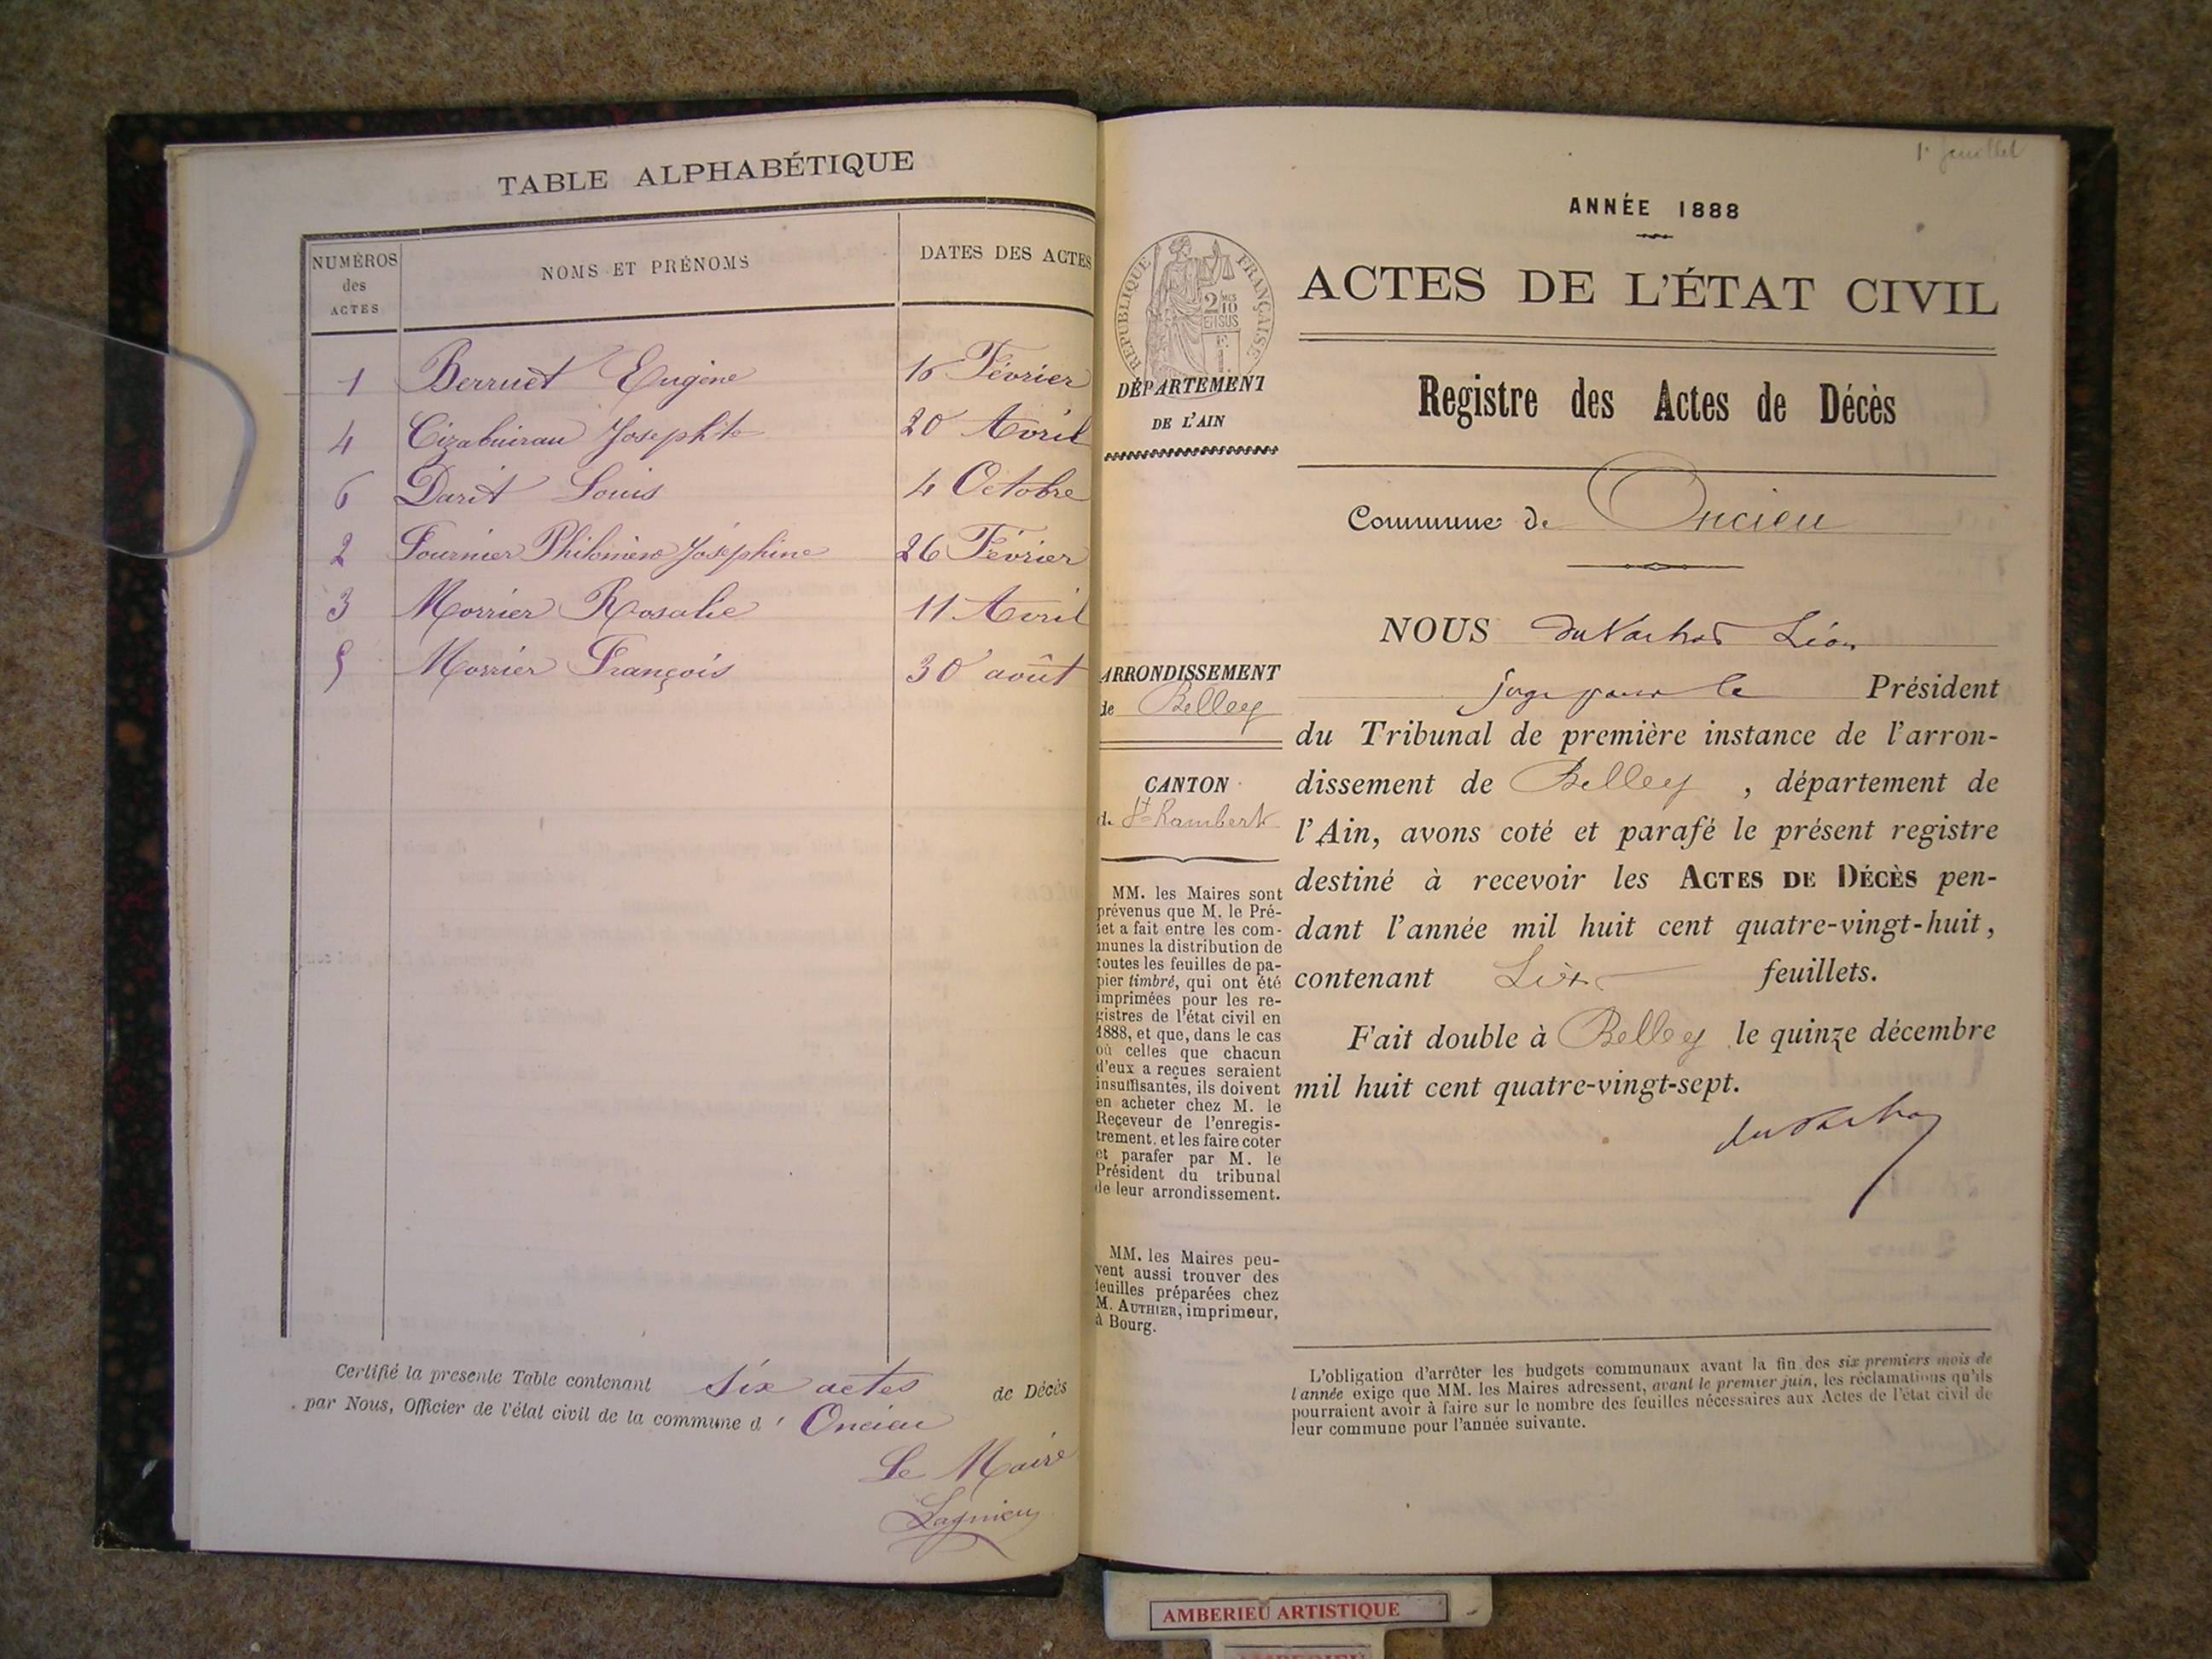 TABLE ALPHABÉTIQUE
NUMÉROS des ACTES
NOMS ET PRÉNOMS
DATES DES ACTES
1 Berruet Eugène 16 Février
4 Josephte 20 Avril
6 Darit Louis 4 Octobre
2 Fournier Philomène Joséphine 26 Février
3 Morrier Rosalie 11 Avril
5 Morrier François 30 août
Certifié la presente Table contenant six actes de Décès
par Nous, Officier de l'état civil de la commune d' Oncieu
Le Maire
Lagnieu
1er feuillet
ANNÉE 1888
RÉPUBLIQUE FRANÇAISE
2/10 EN SUS
ACTES DE L'ÉTAT CIVIL
DÉPARTEMENT
DE L'AIN
Registre des Actes de Décès
Commune de Oncieu
ARRONDISSEMENT
de Belley
CANTON
de St Rambert
MM. les Maires sont
prévenus que M. le Pré-
fet a fait entre les com-
munes la distribution de
toutes les feuilles de pa-
pier timbré, qui ont été
imprimées pour les re-
gistres de l'état civil en
1888, et que, dans le cas
où celles que chacun
d'eux a reçues seraient
insuffisantes, ils doivent
en acheter chez M. le
Receveur de l'enregis-
trement, et les faire coter
et parafer par M. le
Président du tribunal
de leur arrondissement.
MM. les Maires peu-
vent aussi trouver des
feuilles préparées chez
M. AUTHIER, imprimeur,
à Bourg.
NOUS Léon
juge pour le Président
du Tribunal de première instance de l'arron-
dissement de Belley, département de
l'Ain, avons coté et parafé le présent registre
destiné à recevoir les ACTES DE DÉCÈS pen-
dant l'année mil huit cent quatre-vingt-huit,
contenant feuillets.
Fait double à Belley le quinze décembre
mil huit cent quatre-vingt-sept.
L'obligation d'arrêter les budgets communaux avant la fin des six premiers mois de
l'année exige que MM. les Maires adressent, avant le premier juin, les réclamations qu'ils
pourraient avoir à faire sur le nombre des feuilles nécessaires aux Actes de l'état civil de
leur commune pour l'année suivante.
AMBERIEU ARTISTIQUE
AMBERIEU